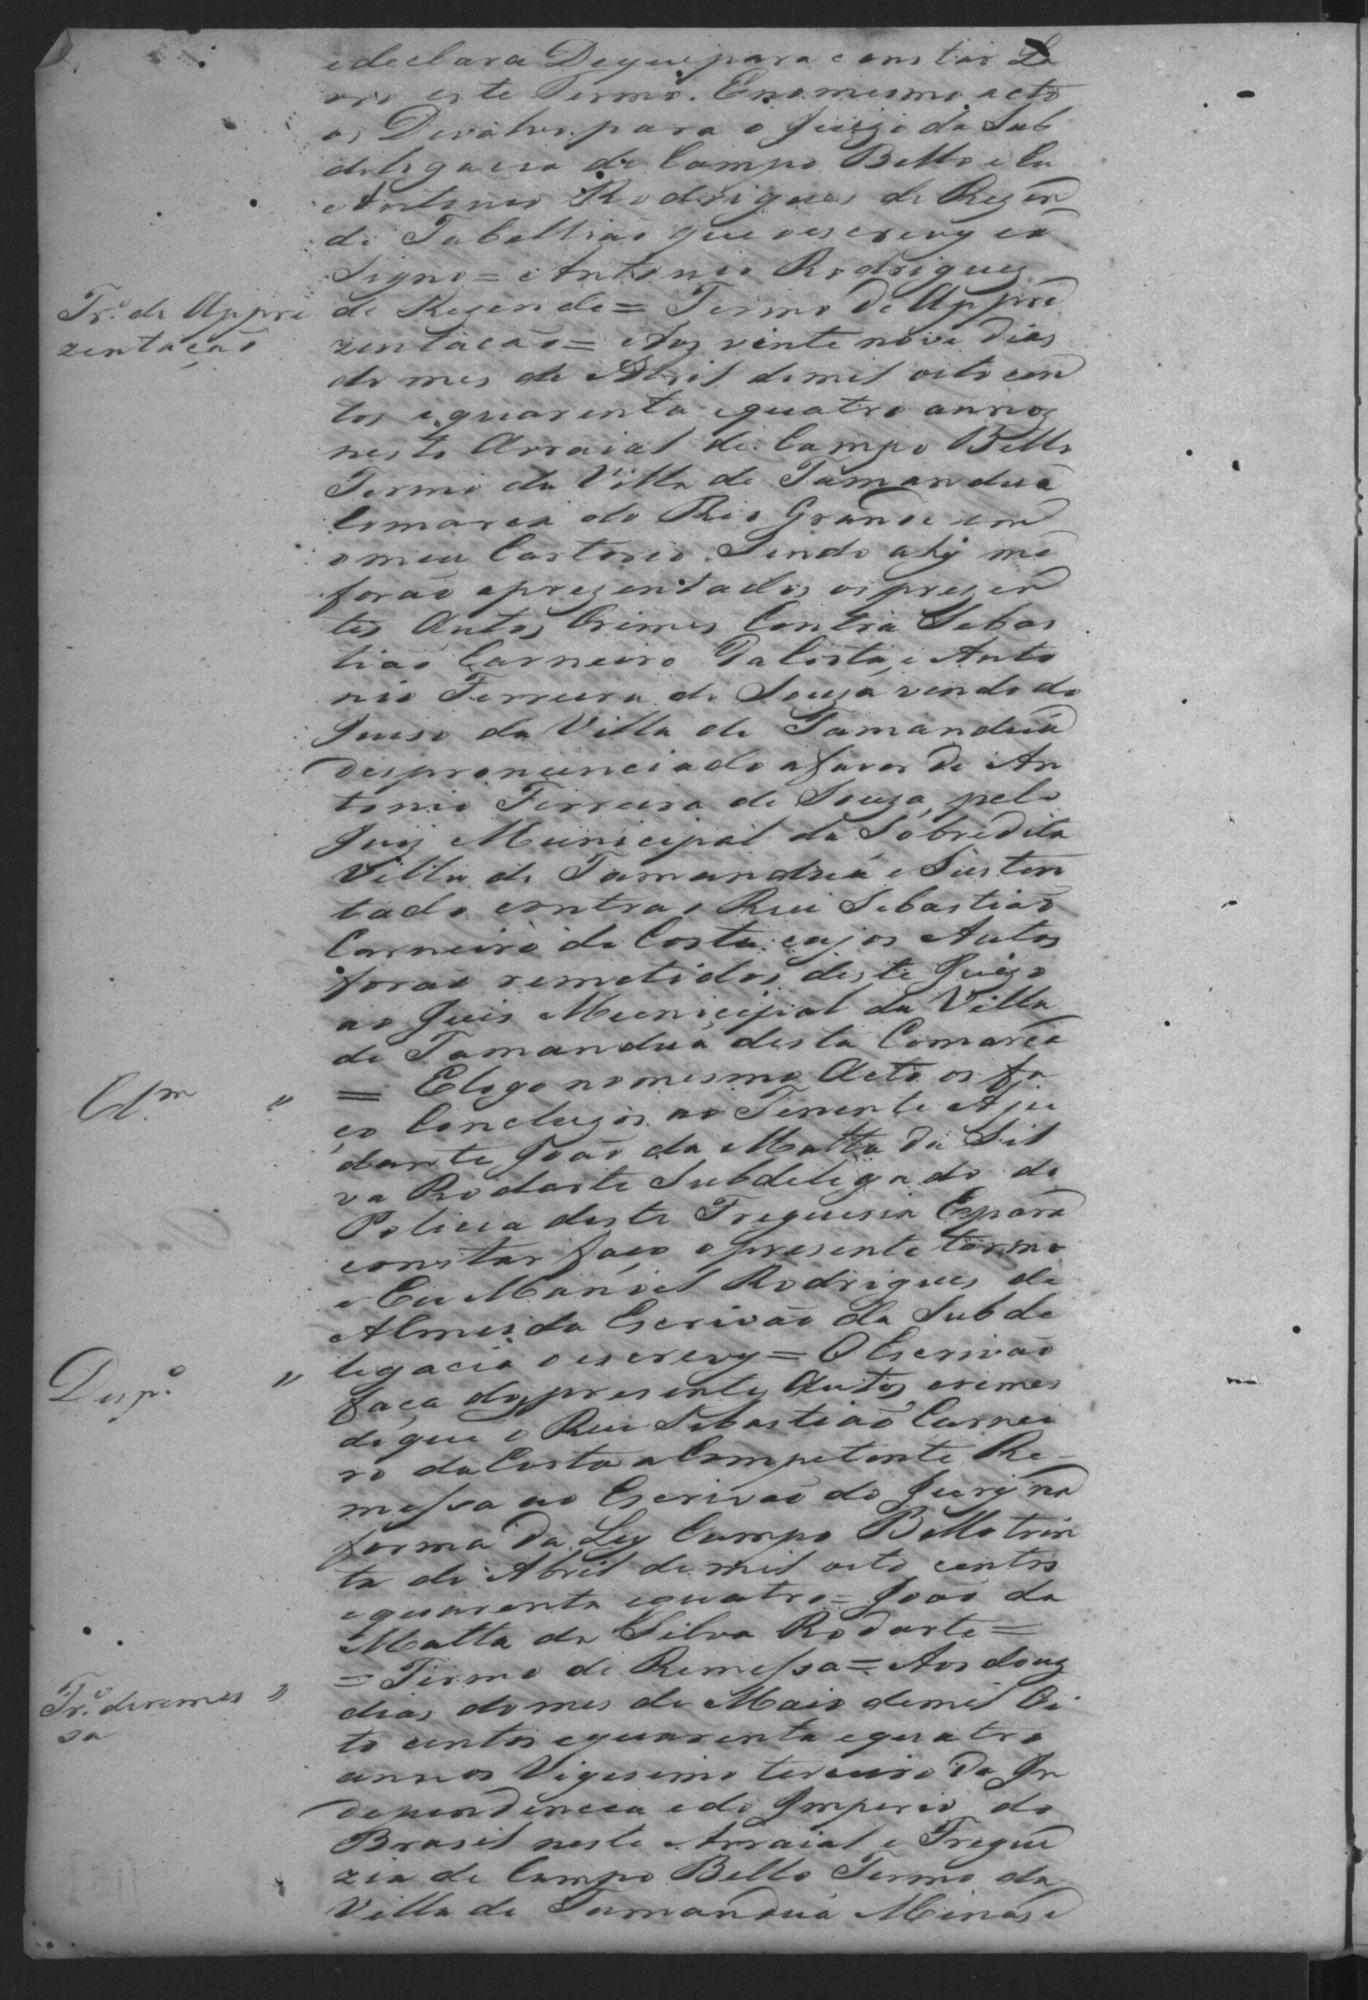 edeclara Deque para constar La
vro este Termo. Enomesmo acto
os Devolvi para o Juizo da Sub
delegacia de Campo Bello e Eu
Antonio Rodrigues de Rezen
de Tabellião que oescrevy ea
Signo = Antonio Rodrigues
Tr.º de Appre
zentação
de Rezende = Termo de Appre
zentacão = Aos vinte nove dias
do mes de Abril demil oito cen
tos equarenta equatro annos
neste Arraial de Campo Bello
Termo da Villa de Tamanduá
Comarca do Rio Grande em
omeu Cartorio. Sendo ahy me
forão aprezentados os prezen
tes Autos Crimes Contra Sebas
tiao Carneiro DaCosta, e Anto
nio Ferreira de Souza vendo do
Juiso da Villa de Tamanduá
despronunciado afavor de An
tonio Ferreira de Souza, pelo
Juiz Municipal da Sobredita
Villa de Tamanduá e Susten
tado contra o Reu Sebastião
Carneiro da Costa cujos Autos
forao remetidos deste Juizo
ao Juis Municipal da Villa
de Tamanduá desta Comarca
Cl.m "
= Elogo nomesmo Acto os fa
ço Concluzos ao Tenente Aju
dante João da Matta da Sil
va Rodarte Subdelegado de
Policia desta Freguesia Epara
constar faço opresente termo
e Eu Manoel Rodrigues de
Almeida Escrivão da Subde
Desp.º "
legacia oescrevy = O Escrivão
faça dos presentes Autos crimes
deque o Reu Sebastiaõ Carnei
ro daCosta a Competente Re-
messa ao Escrivão do Jury na
forma da Ley Campo Bello trin
ta de Abril de mil oito centos
equarenta equatro = João da
Matta da Silva Rodarte =
Tr.º deremes "
sa
= Termo de Remessa = Aos douz
dias domes de Maio demil Oi
to centos equarenta equatro
annos Vigesimo terceiro da In
dependencia edo Imperio do
Brasil neste Arraial e Fregue
zia de Campo Bello Termo da
Villa de Tamanduá Minas e